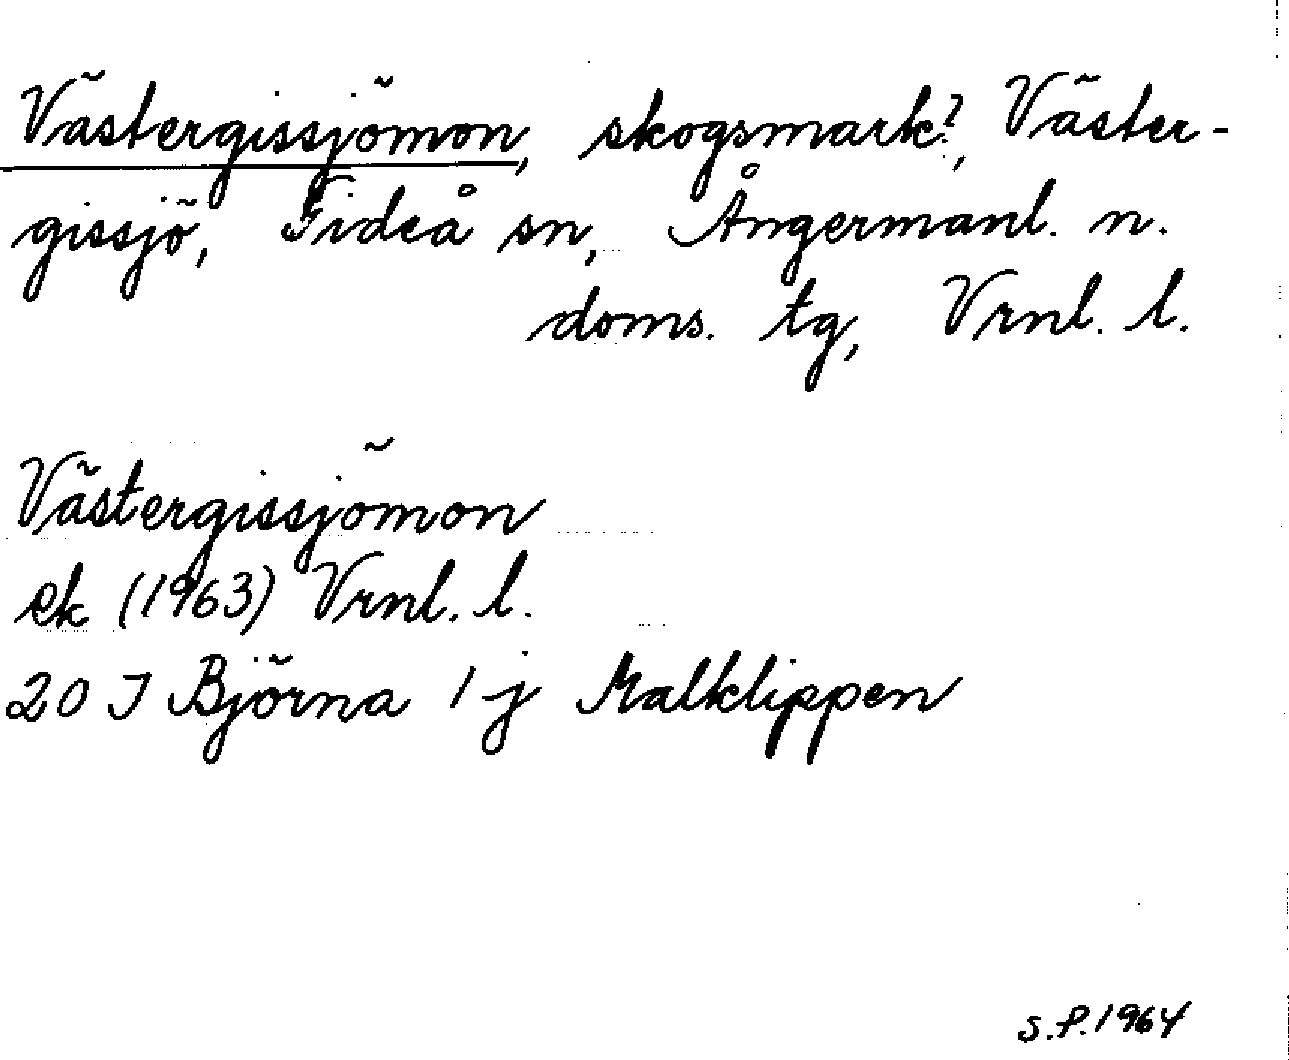 Västergissjömon, skogsmark?, Väster-
gissjö, Gideå sn, Ångermanl. n.
doms. tg, Vrnl. l.
Västergissjömon
ek (1963) Vrnl. l.
20 J Björna 1 j Malklippen
S.P. 1964